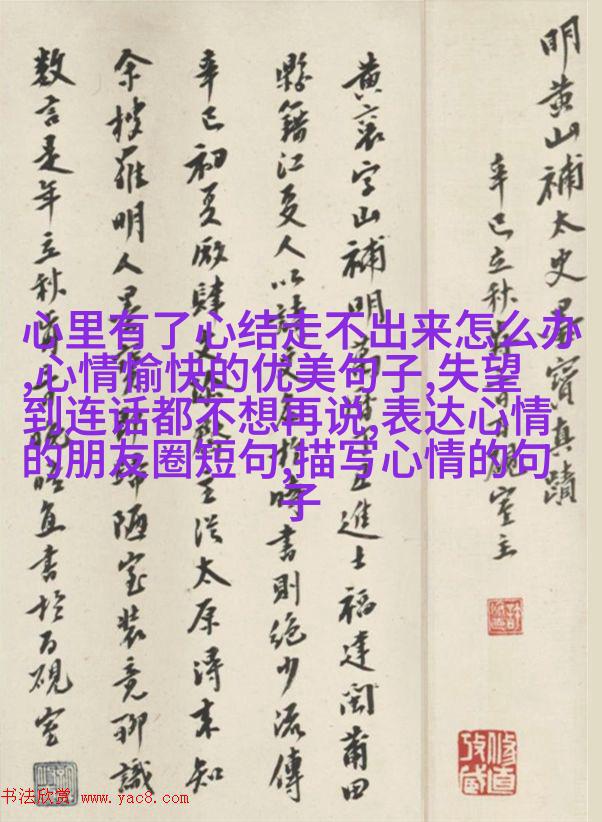 明黄山補太史墨寶真蹟
辛巳立秋日百硯室主
黄襄字山補明丑進士福建閩莆田
縣籍江夏人以詩文名於時書則絕少流傳
辛巳初夏廠肆文主從太原淂来知
余搜羅明人墨歸陋室装竟聊識
數言是年立秋宜書於百硯室
心里有了心结走不出来怎么办
,心情愉快的优美句子,失望
到连话都不想再说,表达心情
的朋友圈短句,描写心情的句
子
书法欣赏 www.yac8.com